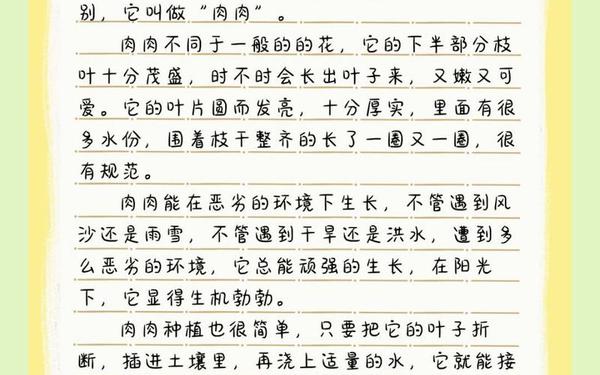 别，它叫做“肉肉”。
肉肉不同于一般的的花，它的下半部分枝
叶十分茂盛，时不时会长出叶子来，又嫩又可
爱。它的叶片圆而发亮，十分厚实，里面有很
多水份，围着枝干整齐的长了一圈又一圈，很
有规范。
肉肉能在恶劣的环境下生长，不管遇到风
沙还是雨雪，不管遇到干旱还是洪水，遭到多
么恶劣的环境，它总能顽强的生长，在阳光
下，它显得生机勃勃。
肉肉种植也很简单，只要把它的叶子折
断，插进土壤里，再浇上适量的水，它就能接